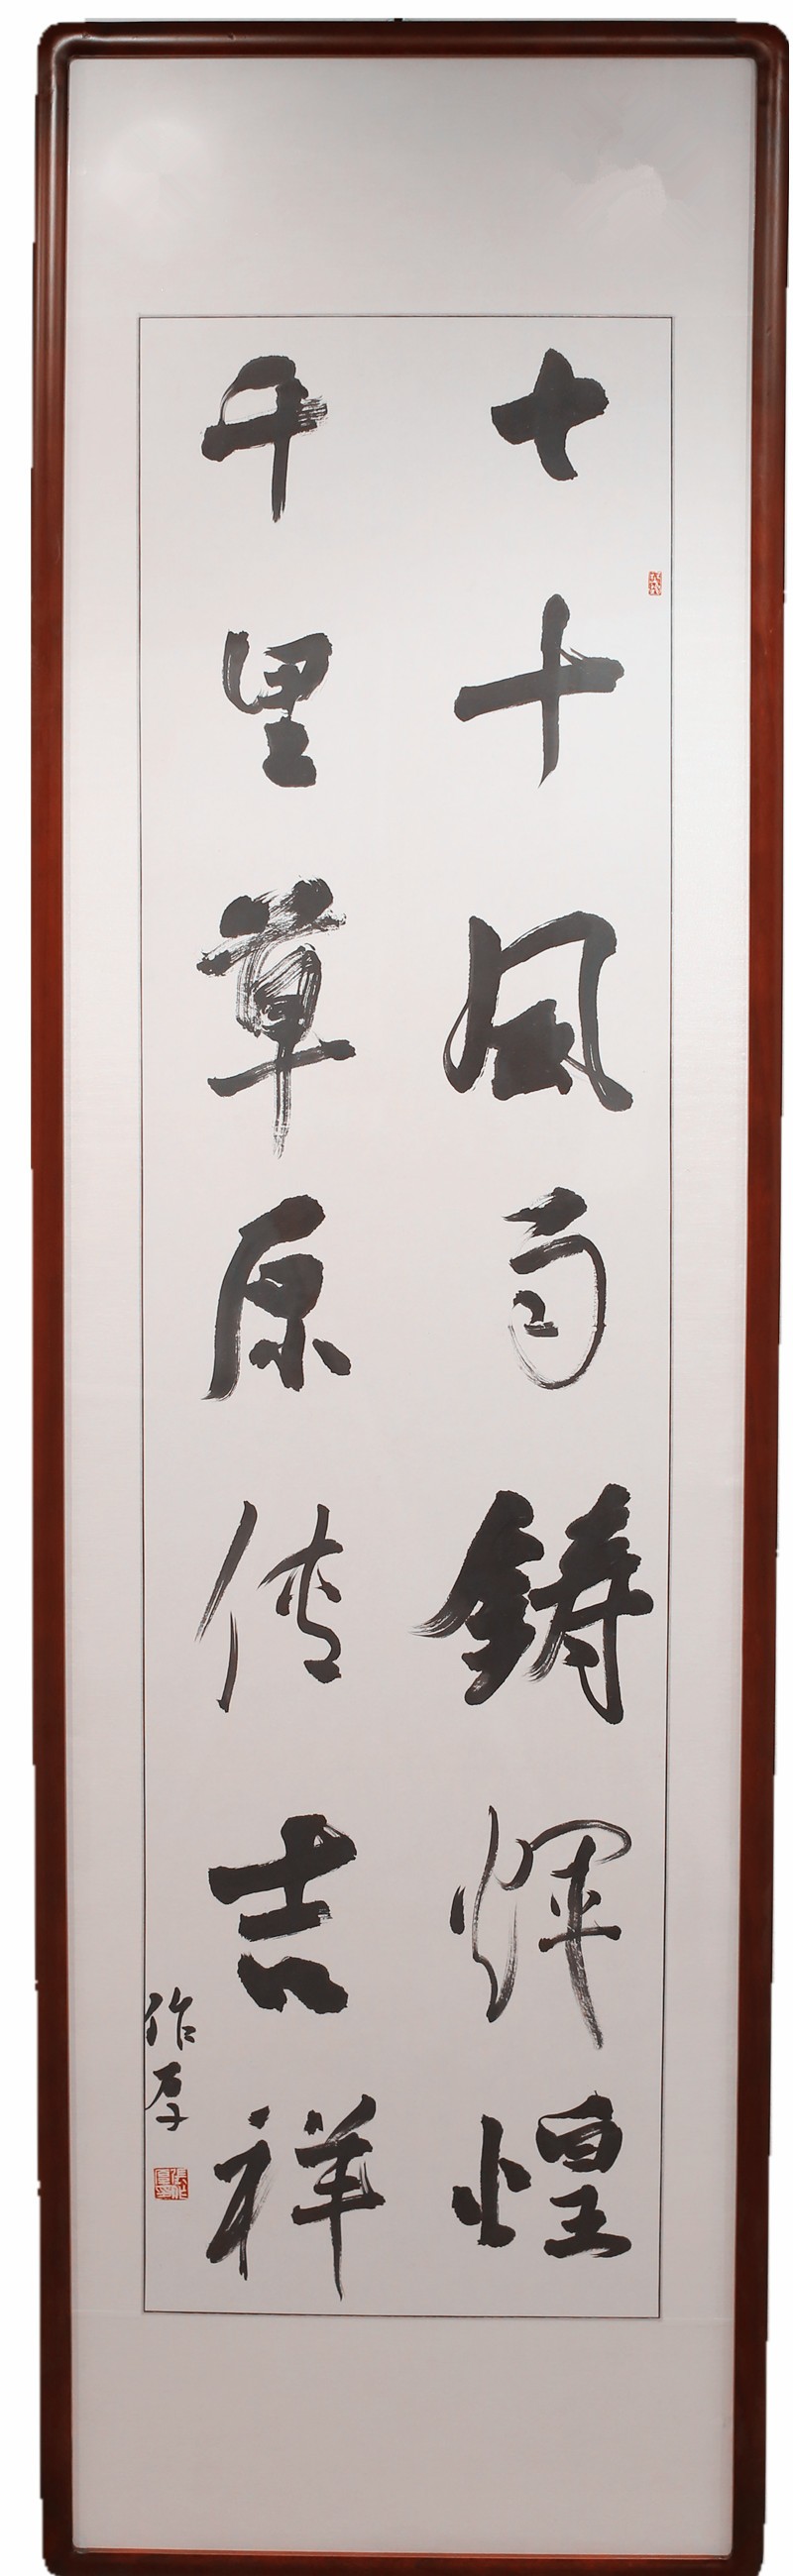 七十风雨铸辉煌
千里草原传吉祥
作厚